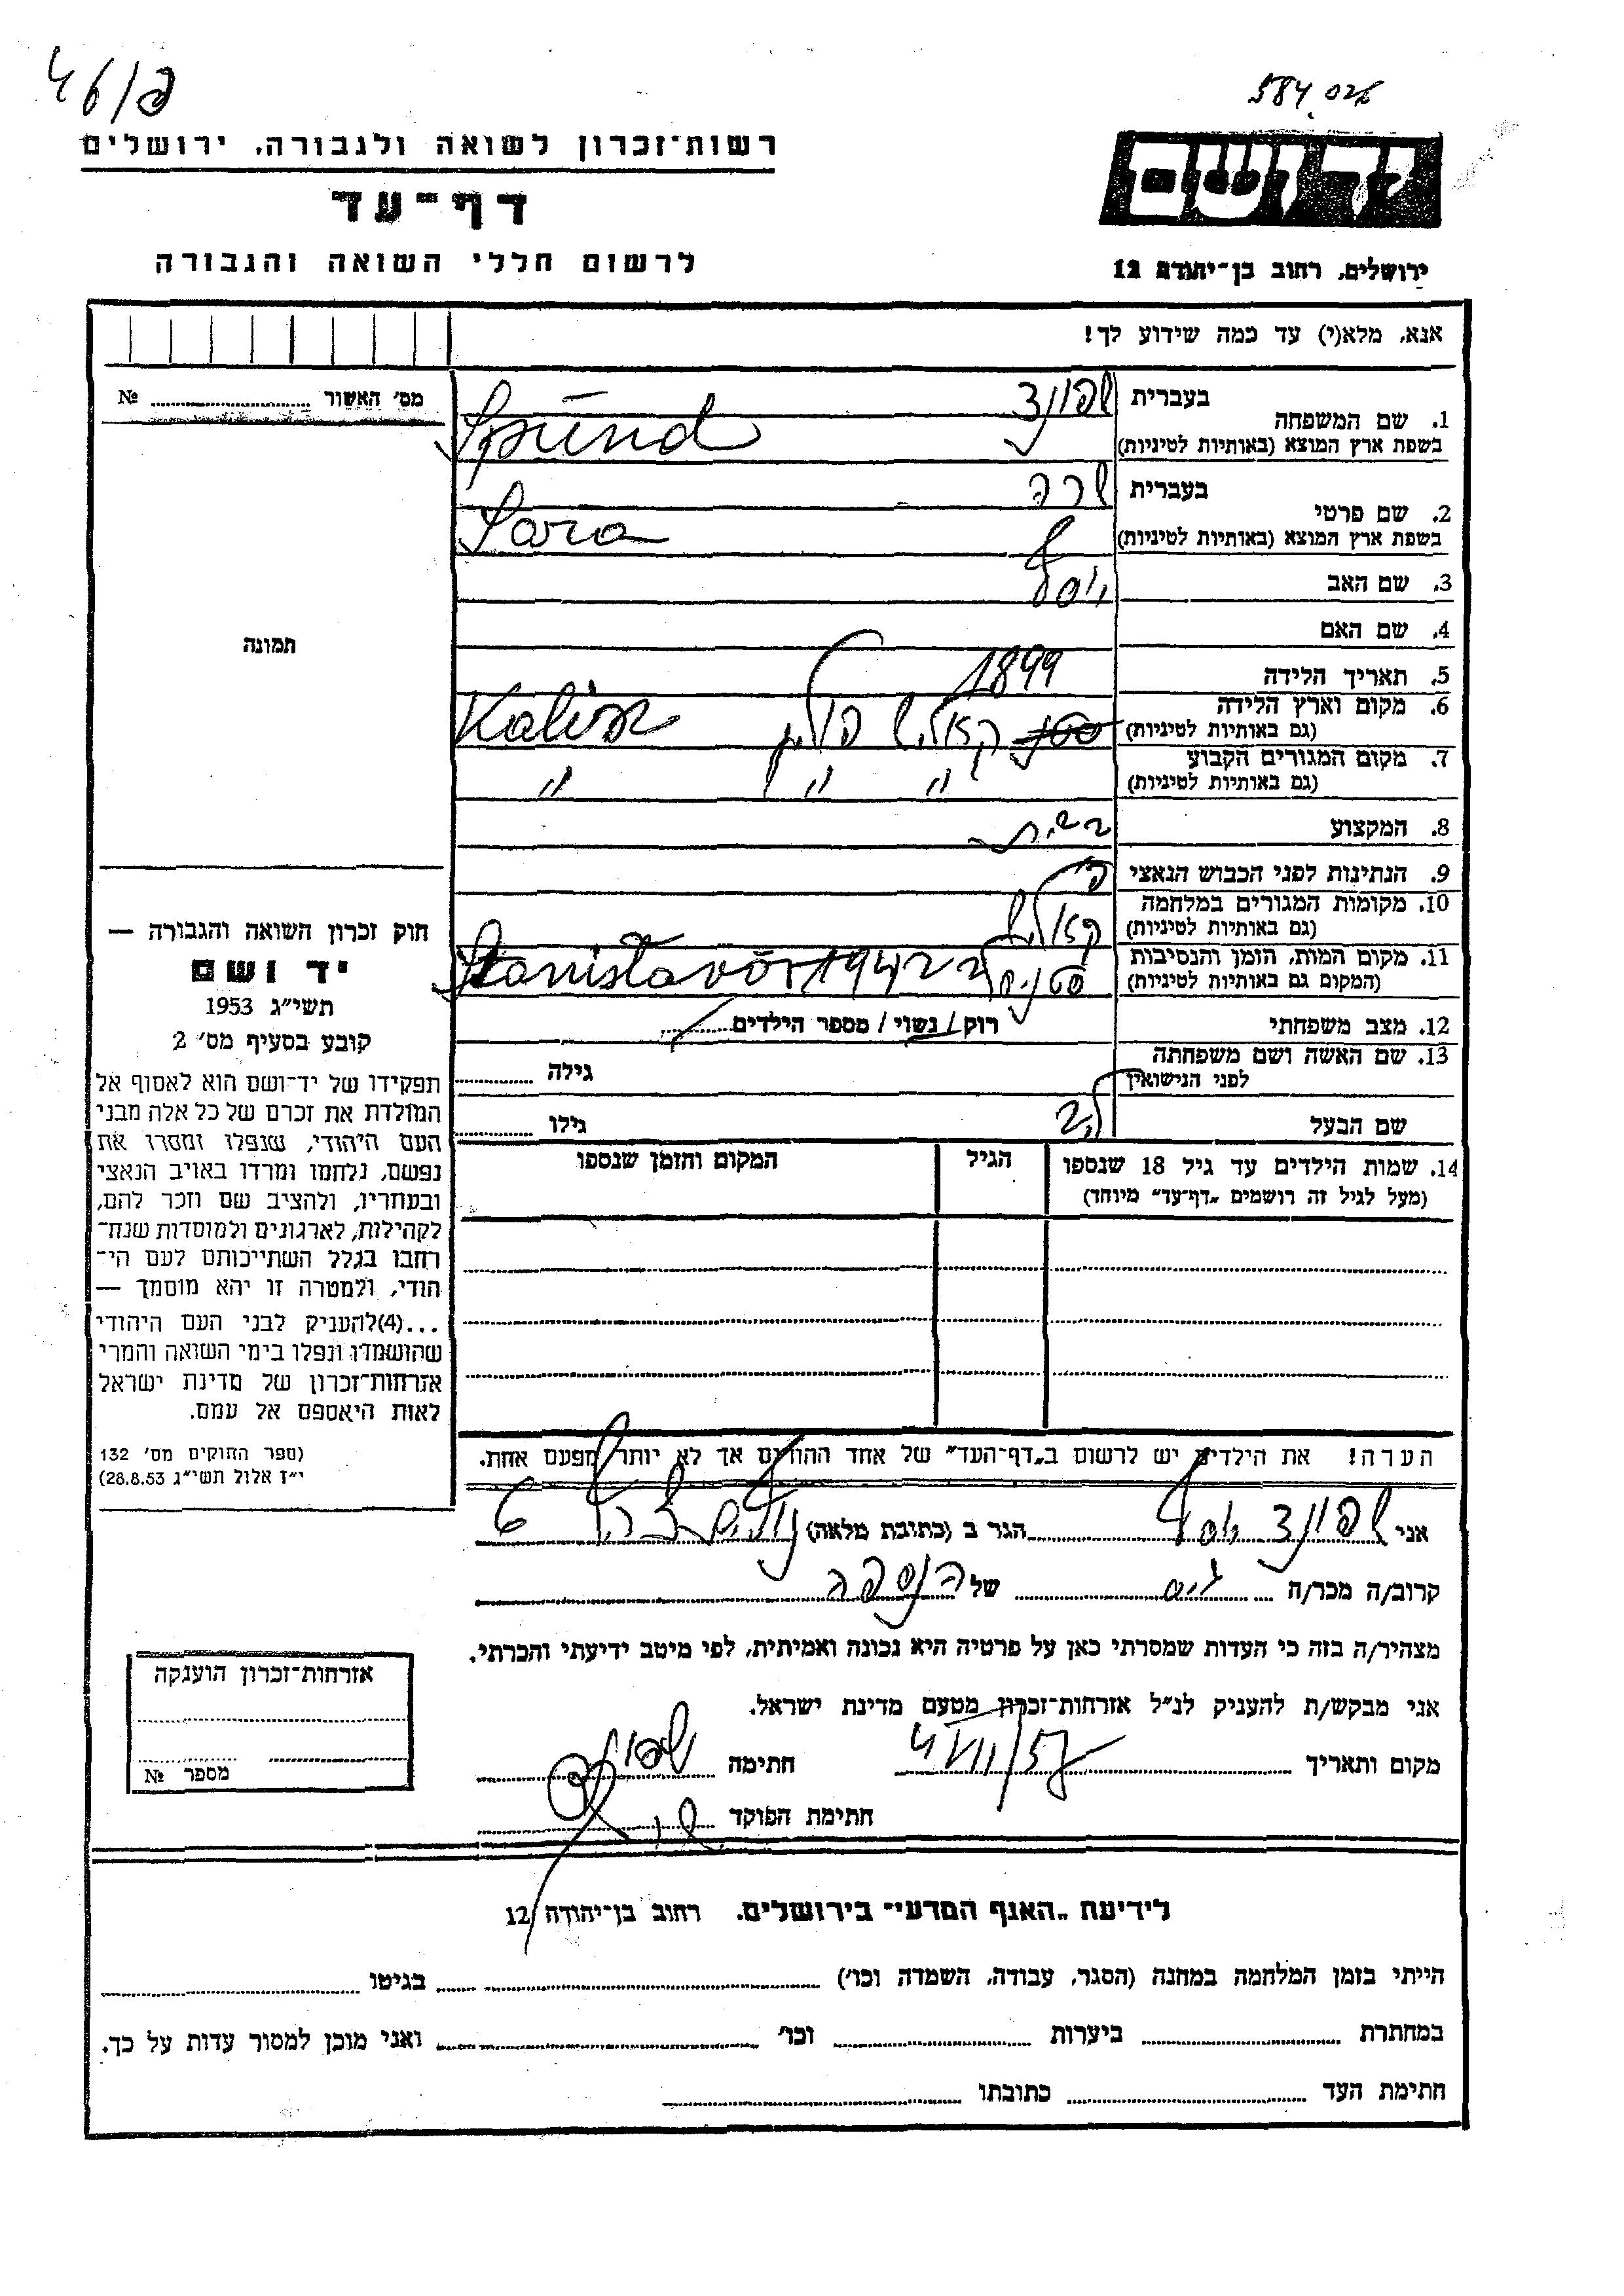 46/פ
584026
רשות־זכרון לשואה ולגבורה, ירושלים
דף־עד
לרשום חללי השואה והגבורה
יד ושם
ירושלים, רחוב בן־יהודה 12
אנא, מלא(י) עד כמה שידוע לך!
מס׳ האשור № 
1. שם המשפחה בעברית שפונד
בשפת ארץ המוצא (באותיות לטיניות) Spünd
2. שם פרטי בעברית שרה
בשפת ארץ המוצא (באותיות לטיניות) Sara
3. שם האב
4. שם האם
5. תאריך הלידה 1899
6. מקום וארץ הלידה
(גם באותיות לטיניות) קאליש פולין Kalisz
7. מקום המגורים הקבוע
(גם באותיות לטיניות) " " "
8. המקצוע
9. הנתינות לפני הכבוש הנאצי פול
10. מקומות המגורים במלחמה
(גם באותיות לטיניות) קאליש
11. מקום המות, הזמן והנסיבות
(המקום גם באותיות לטיניות) 1942
12. מצב משפחתי רוק/נשוי/מספר הילדים
13. שם האשה ושם משפחתה
לפני הנישואין גילה
שם הבעל גילו
14. שמות הילדים עד גיל 18 שנספו
(מעל לגיל זה רושמים „דף־עד” מיוחד)
הגיל
המקום והזמן שנספו
תמונה
חוק זכרון השואה והגבורה —
יד ושם
תשי״ג 1953
קובע בסעיף מס׳ 2
תפקידו של יד־ושם הוא לאסוף אל
המולדת את זכרם של כל אלה מבני
העם היהודי, שנפלו ומסרו את
נפשם, נלחמו ומרדו באויב הנאצי
ובעוזריו, ולהציב שם וזכר להם,
לקהילות, לארגונים ולמוסדות שנח־
רבו בגלל השתייכותם לעם הי־
הודי, ולמטרה זו יהא מוסמך —
...(4)להעניק לבני העם היהודי
שהושמדו ונפלו בימי השואה והמרי
אזרחות־זכרון של מדינת ישראל
לאות היאספם אל עמם.
(ספר החוקים מס׳ 132
י״ז אלול תשי״ג 28.8.53)
הערה! את הילדים יש לרשום ב„דף־העד” של אחד ההורים אך לא יותר מפעם אחת.
אני שפונד יוסף הגר ב (כתובת מלאה)
קרוב/ה מכר/ה גיס של הנספה
מצהיר/ה בזה כי העדות שמסרתי כאן על פרטיה היא נכונה ואמיתית, לפי מיטב ידיעתי והכרתי.
אני מבקש/ת להעניק לנ״ל אזרחות־זכרון מטעם מדינת ישראל.
מקום ותאריך חתימה
חתימת הפוקד
אזרחות־זכרון הוענקה
מספר №
לידיעת „האגף המדעי” בירושלים, רחוב בן־יהודה 12
הייתי בזמן המלחמה במחנה (הסגר, עבודה, השמדה וכו׳) בגיטו
במחתרת ביערות וכו׳ ואני מוכן למסור עדות על כך.
חתימת העד כתובתו